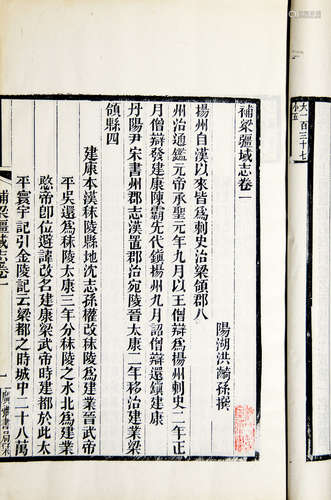 補梁疆域志卷一
陽湖洪齮孫撰
揚州自漢以來皆為刺史治梁領郡八
州治通鑑元帝承聖元年九月以王僧辯為揚州刺史二年正
月僧辯發建康陳霸先代鎮揚州九月詔僧辯還鎮建康
丹陽尹宋書州郡志漢置郡治宛陵晉太康二年移治建業梁
領縣四
建康本漢秣陵縣地沈志孫權改秣陵為建業晉武帝
平吳還為秣陵太康三年分秣陵之水北為建業
愍帝即位避諱改名建康梁武帝時建都於此太
平寰宇記引金陵記云梁都之時城中二十八萬
補梁疆域志卷一
一
廣雅書局栞
大一百三十七
小五